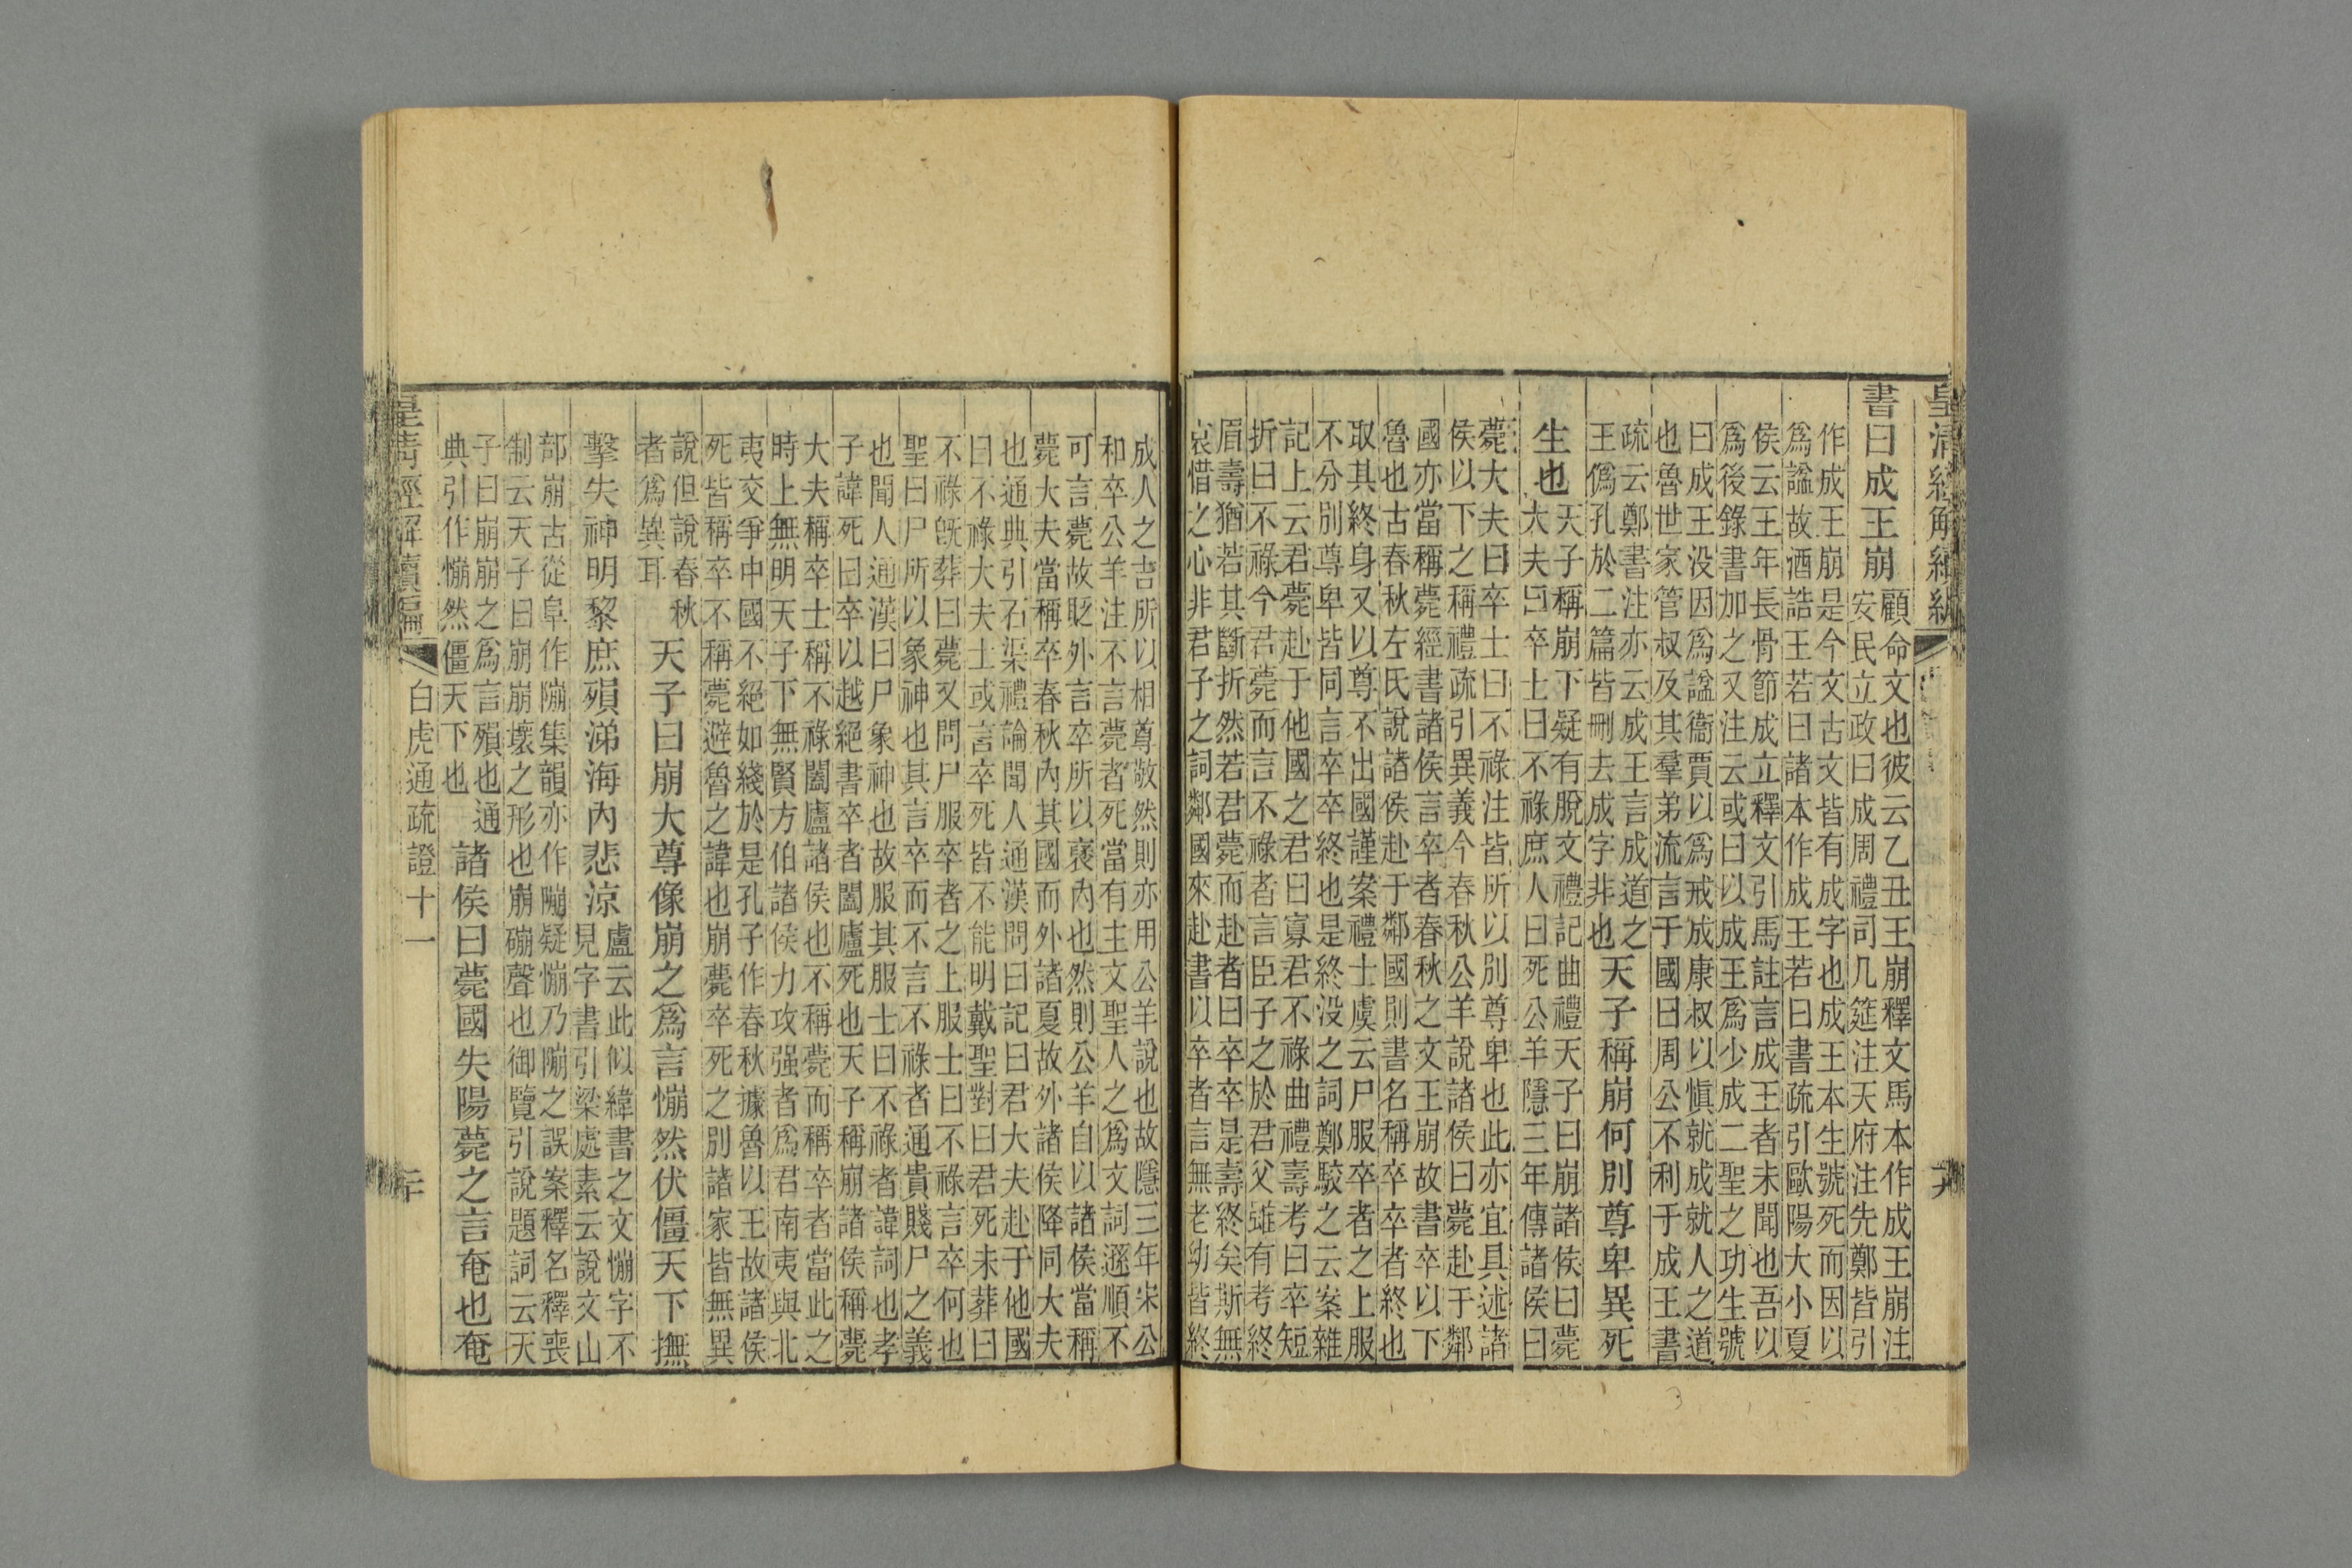 書曰成王崩顧命文也彼云乙丑王崩釋文馬本作成王崩注
安民立政曰成周禮司几筵注天府注先鄭皆引
作成王崩是今文古文皆有成字也成王本生號死而因以
爲諡故酒誥王若曰諸本作成王若曰書疏引歐陽大小夏
侯云王年長骨節成立釋文引馬註言成王者未聞也吾以
爲後錄書加之又注云或曰以成王爲少成二聖之功生號
曰成王没因爲諡衞賈以爲戒成康叔以愼就成就人之道
也魯世家管叔及其羣弟流言于國曰周公不利于成王書
疏云鄭書注亦云成王言成道之
王僞孔於二篇皆刪去成字非也天子稱崩何別尊卑異死
生也天子稱崩下疑有脫文禮記曲禮天子曰崩諸侯曰薨
大夫曰卒士曰不祿庶人曰死公羊隱三年傳諸侯曰
薨大夫曰卒士曰不祿注皆所以別尊卑也此亦宜具述諸
侯以下之稱禮疏引異義今春秋公羊說諸侯曰薨赴于鄰
國亦當稱薨經書諸侯言卒者春秋之文王崩故書卒以下
魯也古春秋左氏說諸侯赴于鄰國則書名稱卒卒者終也
取其終身又以尊不出國謹案禮士虞云尸服卒者之上服
不分別尊卑皆同言卒卒終也是終没之詞鄭駮之云案雜
記上云君薨赴于他國之君曰寡君不祿曲禮壽考曰卒短
折曰不祿今君薨而言不祿者言臣子之於君父雖有考終
眉壽猶若其斷折然若君薨而赴者曰卒卒是壽終矣斯無
哀惜之心非君子之詞鄰國來赴書以卒者言無老幼皆終
成人之吉所以相尊敬然則亦用公羊說也故隱三年宋公
和卒公羊注不言薨者死當有主文聖人之爲文詞遜順不
可言薨故貶外言卒所以襃內也然則公羊自以諸侯當稱
薨大夫當稱卒春秋內其國而外諸夏故外諸侯降同大夫
也通典引石渠禮論聞人通漢問曰記曰君大夫赴于他國
曰不祿大夫士或言卒死皆不能明戴聖對曰君死未葬曰
不祿旣葬曰薨又問尸服卒者之上服士曰不祿言卒何也
聖曰尸所以象神也其言卒而不言不祿者通貴賤尸之義
也聞人通漢曰尸象神也故服其服士曰不祿者諱詞也孝
子諱死曰卒以越絕書卒者闔廬死也天子稱崩諸侯稱薨
大夫稱卒士稱不祿闔廬諸侯也不稱薨而稱卒者當此之
時上無明天子下無賢方伯諸侯力攻强者爲君南夷與北
夷交爭中國不絕如綫於是孔子作春秋據魯以王故諸侯
死皆稱卒不稱薨避魯之諱也崩薨卒死之別諸家皆無異
說但說春秋
者爲異耳天子曰崩大尊像崩之爲言𢠵然伏僵天下撫
擊失神明黎庶殞涕海內悲涼盧云此似緯書之文𢠵字不
見字書引梁處素云說文山
部崩古從𨸏作𨻱集韻亦作𨻱疑𢠵乃𨻱之誤案釋名釋喪
制云天子曰崩崩壞之形也崩硼聲也御覽引說題詞云天
子曰崩崩之爲言殞也通
典引作𢠵然僵天下也諸侯曰薨國失陽薨之言奄也奄
白虎通疏證十一